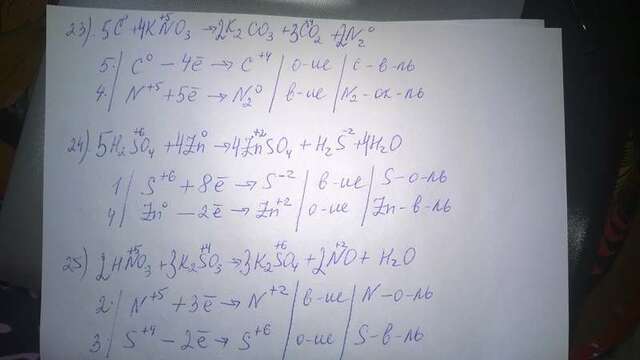 23). 5C⁰ + 4KN⁺⁵O₃ → 2K₂CO₃ + 3C⁺⁴O₂ + 2N₂⁰
5. | C⁰ - 4ē → C⁺⁴ | о-ие | с-в-ль
4. | N⁺⁵ + 5ē → N₂⁰ | в-ие | N₂-ок-ль
24) 5H₂S⁺⁶O₄ + 4Zn⁰ → 4Zn⁺²SO₄ + H₂S⁻² + 4H₂O
1 | S⁺⁶ + 8ē → S⁻² | в-ие | S-о-ль
4 | Zn⁰ - 2ē → Zn⁺² | о-ие | Zn-в-ль
25) 2HN⁺⁵O₃ + 3K₂S⁺⁴O₃ → 3K₂S⁺⁶O₄ + 2N⁺²O + H₂O
2. | N⁺⁵ + 3ē → N⁺² | в-ие | N-о-ль
3. | S⁺⁴ - 2ē → S⁺⁶ | о-ие | S-в-ль